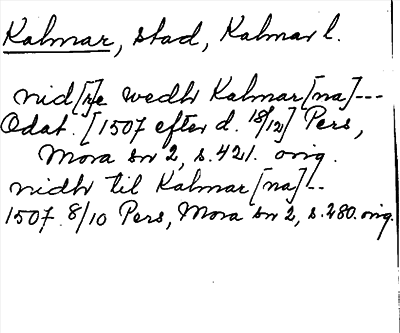 Kalmar, stad, Kalmar l.
nid[r]e wedhr Kalmar[na]---
Odat. [1507 efter d. 18/12] Pers,
Mora sn 2, s. 421. orig.
nidhr til Kalmar[na]--
1507. 8/10 Pers, Mora sn 2, s. 280. orig.